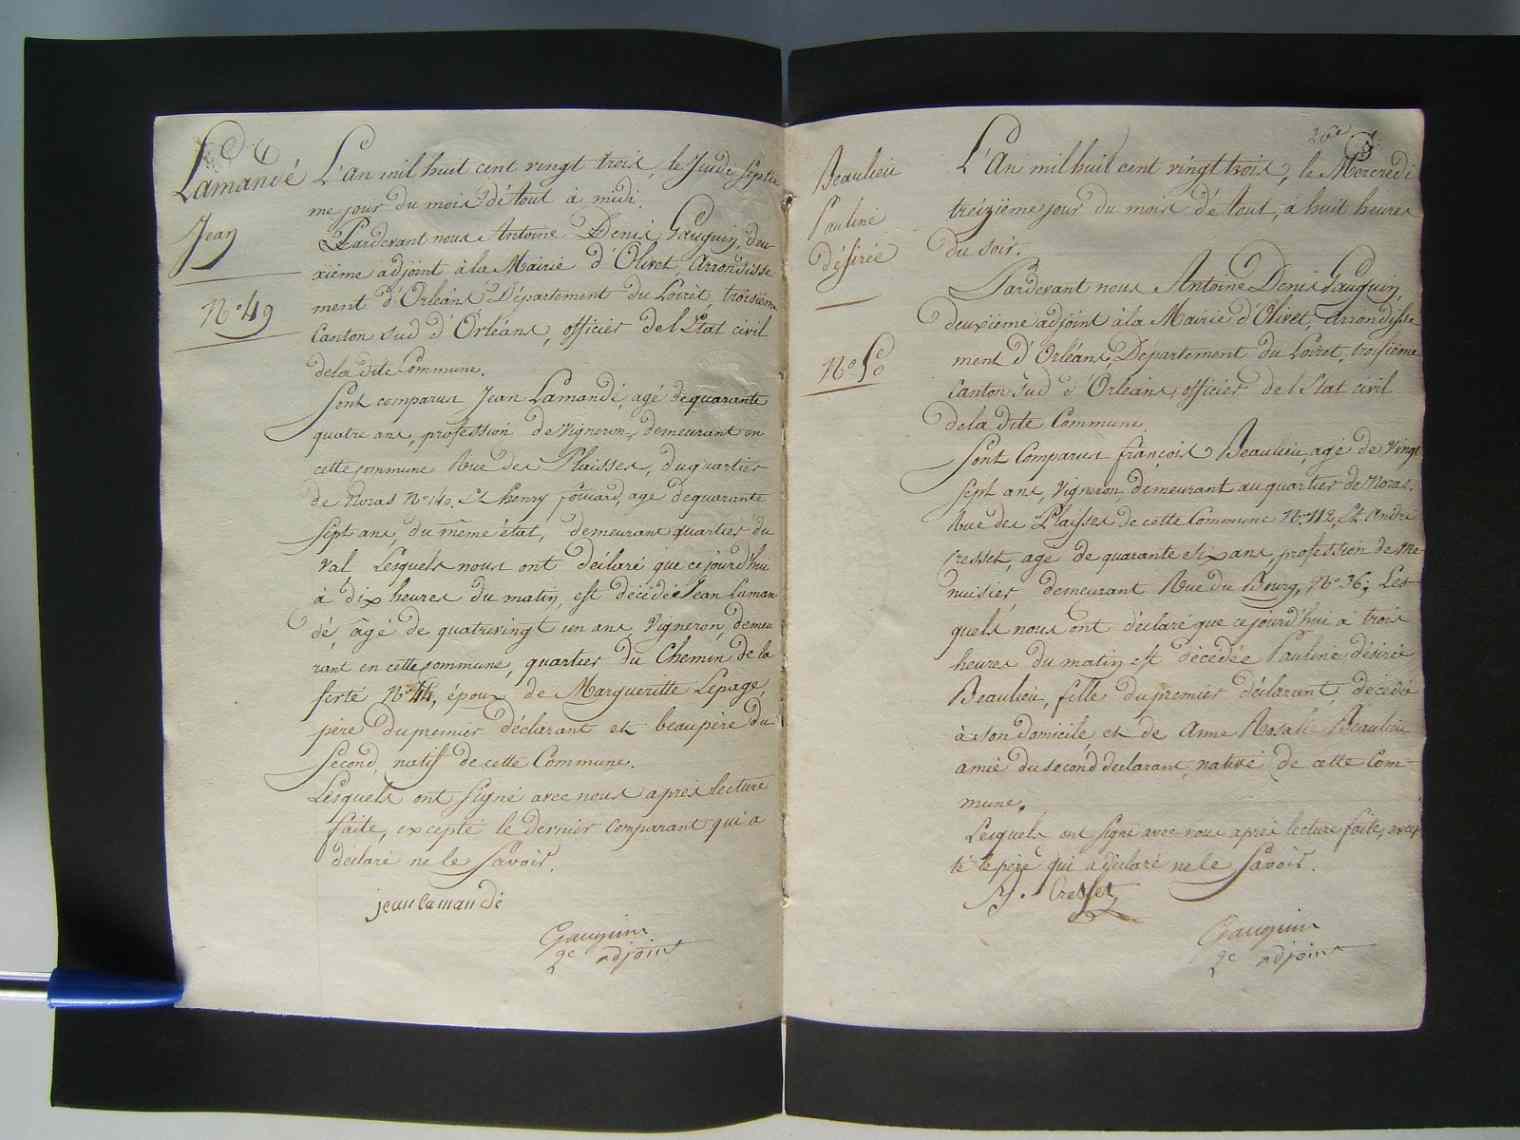 Lamandé
Jean
N.o 49
L'an mil huit cent vingt trois, le Jeudi septiè
me jour du mois d'é tout à midi.
Pardevant nous Antoine Denis Gauguin, deu-
xième adjoint à la Mairie d'Olivet, Arrondisse
ment d'Orléans Département du Loiret, troisième
Canton sud d'Orléans, officier de l'Etat civil
de la dite Commune.
Sont comparus Jean Lamandé, agé de quarante
quatre ans, profession de Vigneron, demeurant en
cette commune Rue des Plaisses, du quartier
de Noras N.o 40. Et henry foucard, agé de quarante
sept ans, du même état, demeurant quartier du
Val Lesquels nous ont déclaré que cejourd'hui
à dix heures du matin, est décédé Jean Laman
dé, âgé de quatrevingt un ans, Vigneron, demeu
rant en cette commune, quartier du Chemin de la
ferté N.o 44, époux de Margueritte Lepage,
père du premier déclarant et beaupère du
Second, natif de cette Commune.
Lesquels ont signé avec nous après lecture
faite, excepté le dernier comparant qui a
déclaré ne le Savoir.
jean lamandé
Gauguin
2e adjoint
Beaulieu
Pauline
désirée
N.o 50
26e
L'An mil huit cent vingt trois, le Mercredi
treizième jour du mois d'é tout, à huit heures
du soir.
Pardevant nous Antoine Denis Gauguin,
deuxième adjoint à la Mairie d'Olivet, Arrondisse
ment d'Orléans, Département du Loiret, troisième
Canton Sud d'Orléans, officier de l'Etat civil
de la dite Commune.
Sont Comparus françois Beaulieu, agé de Vingt
Sept ans, Vigneron demeurant au quartier de Noras.
Rue des Plaisses de cette Commune N.o 42, Et André
Cresset, agé de quarante six ans, profession de Me
nuisier demeurant Rue du Bourg, N.o 36; Les-
quels nous ont déclaré que cejourd'hui à trois
heures du matin est décédée Pauline désirée
Beaulieu, fille du premier déclarant, décédée
à son domicile et de Anne Rosalie Beaulieu
amie du second déclarant, native de cette Com-
mune.
Lesquels ont signé avec nous après lecture faite, excep
té le père qui a déclaré ne le Savoir.
Cresset
Gauguin
2e adjoint